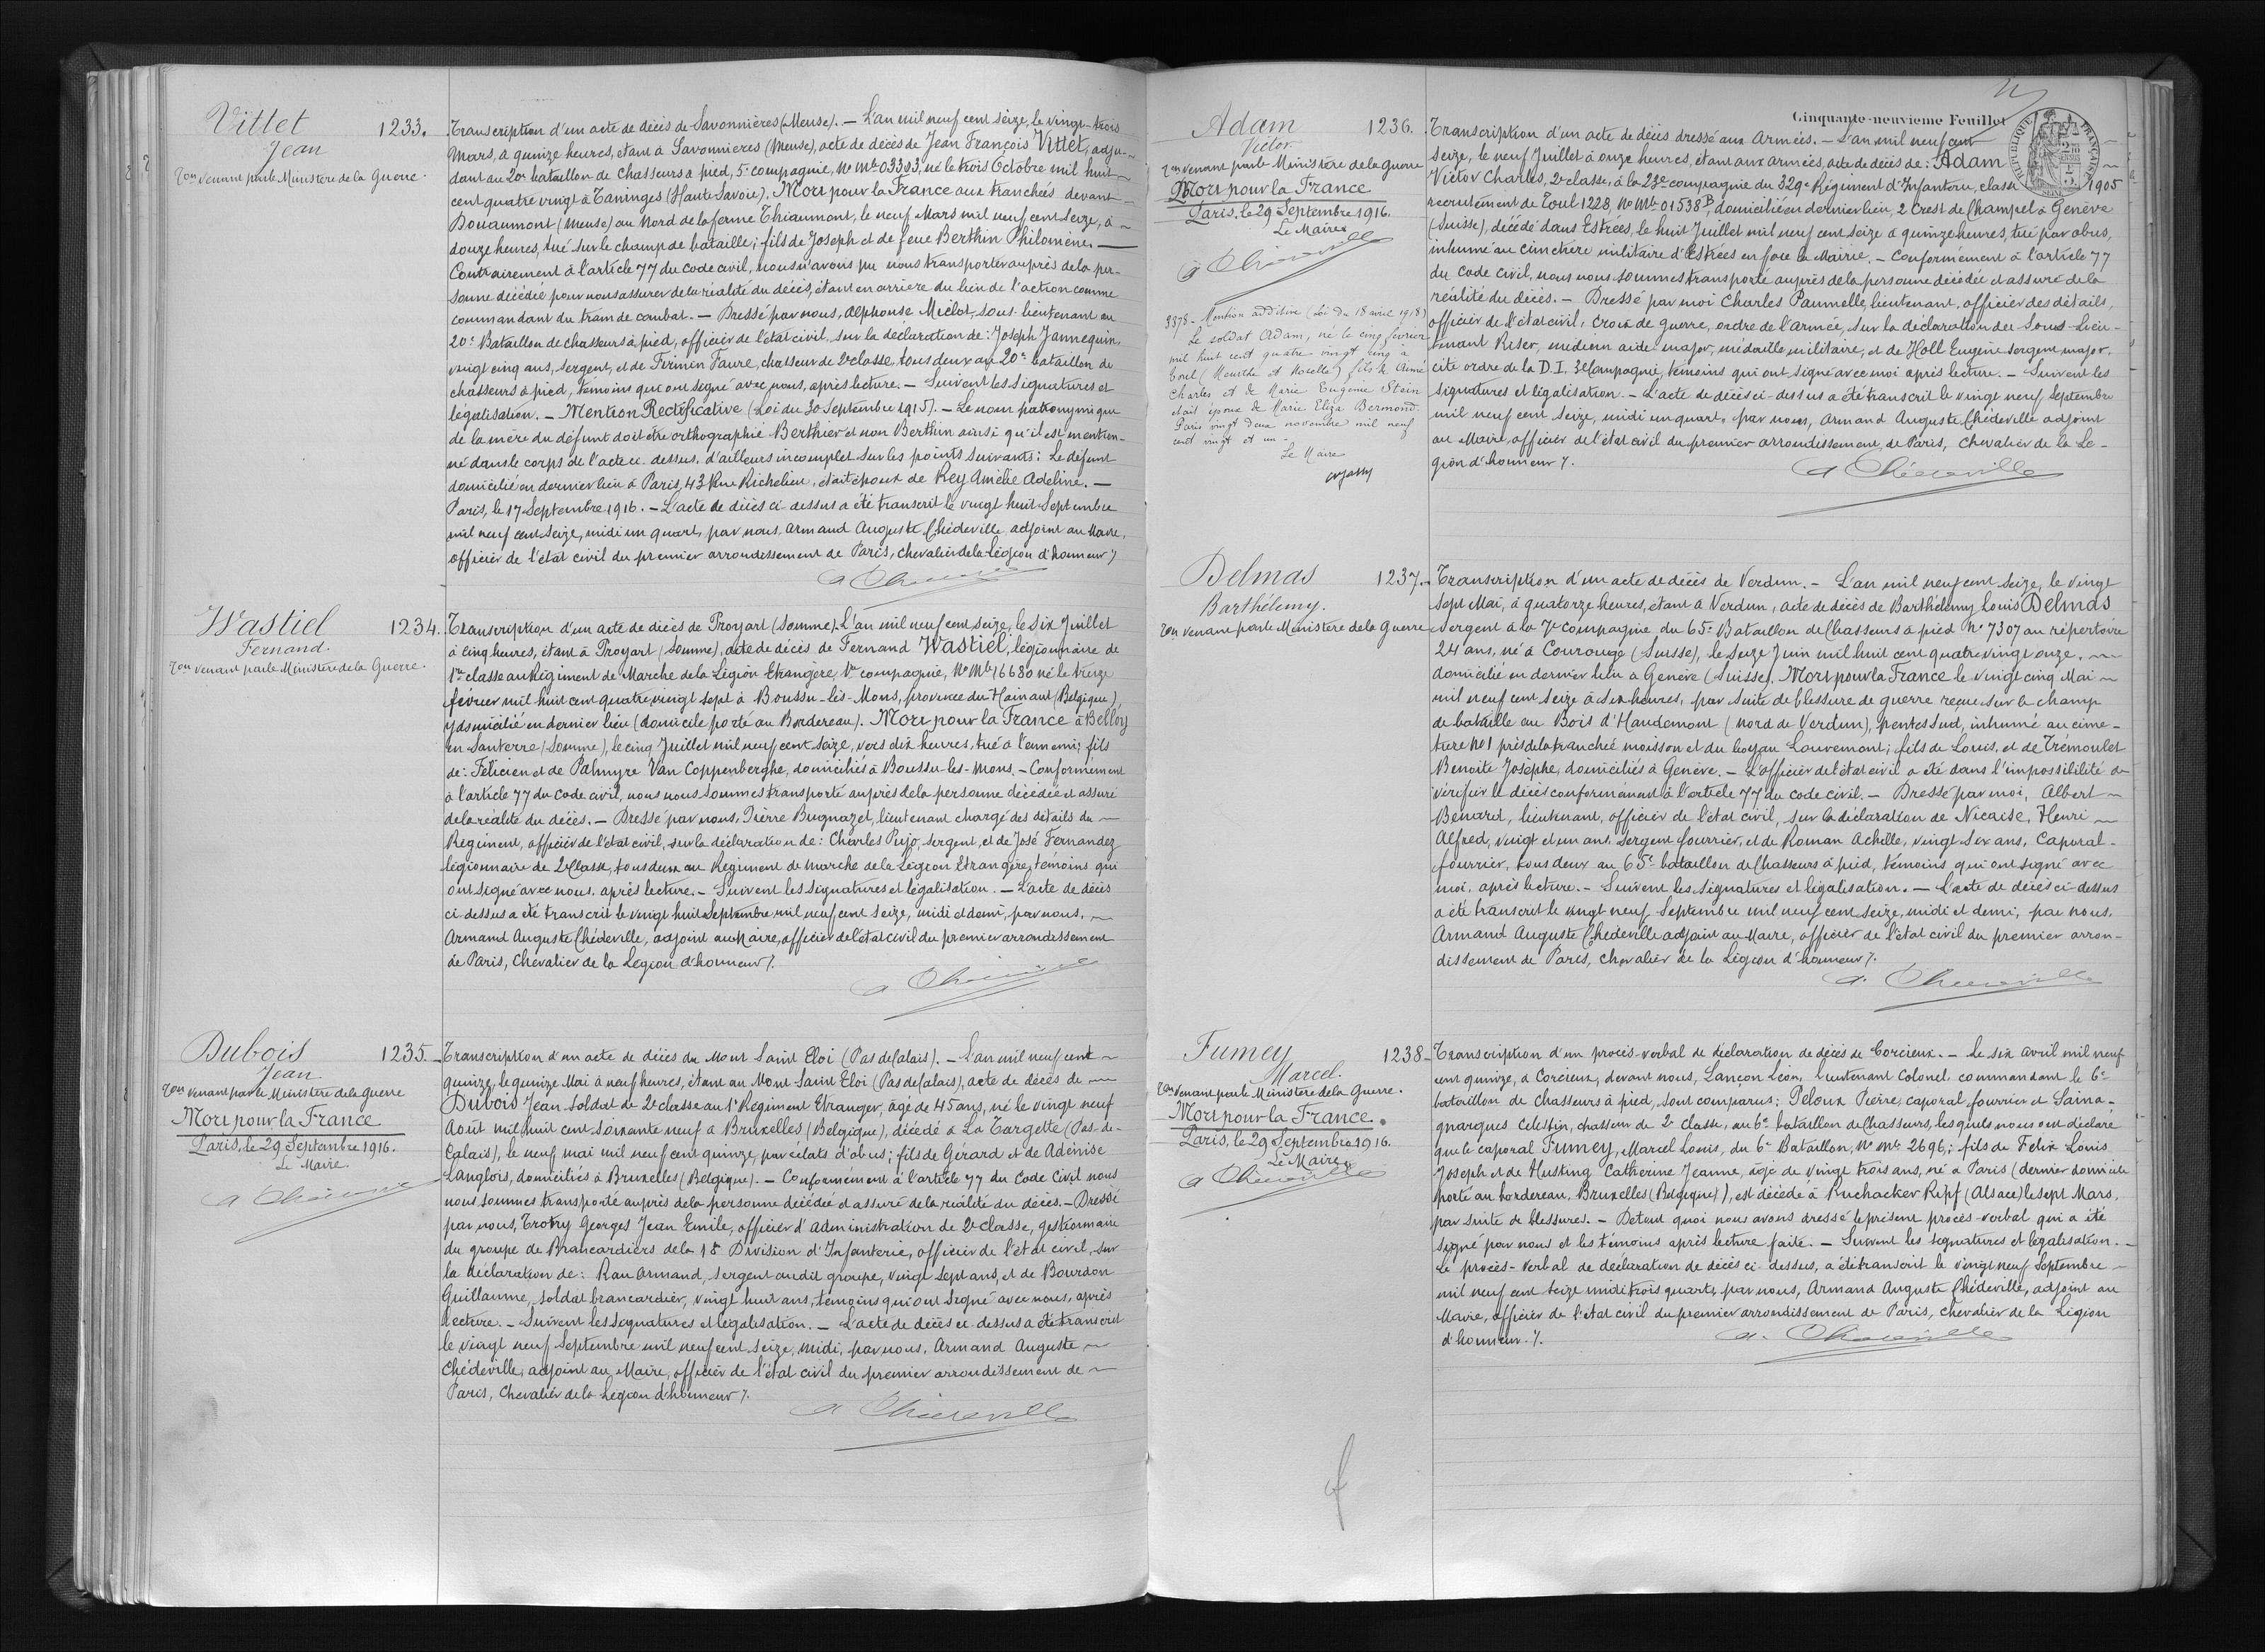 Vittet
Jean
1233.
Ton venant par le Ministère de la Guerre.
Transcription d'un acte de décès de Savonnières (Meuse). — L'an mil neuf cent seize, le vingt-trois
Mars, à quinze heures, étant à Savonnières (Meuse), acte de décès de Jean François Vittet, adju-
dant au 20e bataillon de Chasseurs à pied, 5e compagnie, No Mle 03393, né le trois Octobre mil huit
cent quatre vingt à Taninges (Haute Savoie). Mort pour la France aux tranchées devant
Douaumont (Meuse) au Nord de la ferme Thiaumont, le neuf Mars mil neuf cent seize, à
douze heures, tué sur le champ de bataille; fils de Joseph et de feue Berthin Philomène. —
Contrairement à l'article 77 du code civil, nous n'avons pu nous transporter auprès de la per-
sonne décédée pour nous assurer de la réalité du décès, étant en arrière du lieu de l'action comme
commandant du train de combat. — Dressé par nous, Alphonse Miclot, sous-lieutenant au
20e Bataillon de chasseurs à pied, officier de l'état civil, sur la déclaration de: Joseph Jannequin,
vingt cinq ans, sergent, et de Firmin Faure, chasseur de 2e classe, tous deux au 20e bataillon de
chasseurs à pied, témoins qui ont signé avec nous, après lecture. — Suivent les signatures et
légalisation. — Mention Rectificative (Loi du 30 Septembre 1915). — Le nom patronymique
de la mère du défunt doit être orthographié Berthier et non Berthin ainsi qu'il est mention-
né dans le corps de l'acte ci-dessus, d'ailleurs incomplet sur les points suivants: Le défunt
domicilié en dernier lieu à Paris, 43 Rue Richelieu, était époux de Rey Amélie Adeline. —
Paris, le 17 Septembre 1916. — L'acte de décès ci-dessus a été transcrit le vingt huit Septembre
mil neuf cent seize, midi un quart, par nous, Armand Auguste Chédeville, adjoint au Maire,
officier de l'état civil du premier arrondissement de Paris, chevalier de la Légion d'honneur /.
A Chédeville
Wastiel
Fernand.
1234.
Ton venant par le Ministère de la Guerre.
Transcription d'un acte de décès de Proyart (Somme). L'an mil neuf cent seize, le six Juillet
à cinq heures, étant à Proyart (Somme), acte de décès de Fernand Wastiel, légionnaire de
1re classe au Régiment de Marche de la Légion Etrangère, 1re compagnie, No Mle 16680 né le treize
février mil huit cent quatre vingt sept à Boussu-les-Mons, province du Hainaut (Belgique)
y domicilié en dernier lieu (domicile porté au Bordereau). Mort pour la France à Belloy
en Santerre (Somme), le cinq Juillet mil neuf cent seize, vers dix heures, tué à l'ennemi; fils
de: Félicien et de Palmyre Van Coppenberghe, domiciliés à Boussu-les-Mons. — Conformément
à l'article 77 du code civil, nous nous sommes transporté auprès de la personne décédée et assuré
de la réalité du décès. — Dressé par nous, Pierre Bugnazet, lieutenant chargé des détails du
Régiment, officier de l'état civil, sur la déclaration de: Charles Pujo, sergent, et de José Fernandez
légionnaire de 2e Classe, tous deux au Régiment de marche de la Légion Etrangère, témoins qui
ont signé avec nous, après lecture. — Suivent les signatures et légalisation. — L'acte de décès
ci dessus a été transcrit le vingt huit Septembre mil neuf cent seize, midi et demi, par nous,
Armand Auguste Chédeville, adjoint au Maire, officier de l'état civil du premier arrondissement
de Paris, Chevalier de la Légion d'honneur /.
A Chédeville
Dubois
Jean
1235.
Ton venant par le Ministère de la Guerre
Mort pour la France
Paris, le 29 Septembre 1916.
Le Maire.
A Chédeville
Transcription d'un acte de décès du Mont Saint Eloi (Pas de Calais). — L'an mil neuf cent
quinze, le quinze Mai à neuf heures, étant au Mont Saint Eloi (Pas de Calais), acte de décès de
Dubois Jean Soldat de 2e classe au 1er Régiment Etranger, âgé de 45 ans, né le vingt neuf
Août mil huit cent soixante neuf à Bruxelles (Belgique), décédé à La Targette (Pas-de-
Calais), le neuf mai mil neuf cent quinze, par éclats d'obus; fils de Gérard et de Adénise
Langlois, domiciliés à Bruxelles (Belgique). — Conformément à l'article 77 du Code Civil nous
nous sommes transporté auprès de la personne décédée et assuré de la réalité du décès. — Dressé
par nous, Trotry Georges Jean Emile, officier d'administration de 2e classe, gestionnaire
du groupe de Brancardiers de la 18e Division d'Infanterie, officier de l'état civil, sur
la déclaration de: Rau Armand, sergent audit groupe, vingt sept ans, et de Bourdon
Guillaume, soldat brancardier, vingt huit ans, témoins qui ont signé avec nous, après
lecture. — Suivent les signatures et légalisation. — L'acte de décès ci-dessus a été transcrit
le vingt neuf Septembre mil neuf cent seize, midi, par nous, Armand Auguste
Chédeville, adjoint au Maire, officier de l'état civil du premier arrondissement de
Paris, Chevalier de la Légion d'honneur /.
A Chédeville
Cinquante-neuvième Feuillet
RÉPUBLIQUE FRANÇAISE
Adam
Victor.
1236.
Ton venant par le Ministère de la Guerre
Mort pour la France
Paris, le 29 Septembre 1916.
Le Maire
A Chédeville
3378 - Mention additive (Loi du 18 avril 1918)
Le soldat Adam, né le cinq février
mil huit cent quatre vingt cinq à
Toul (Meurthe et Moselle) fils de Aimé
Charles et de Marie Eugénie Stein
était époux de Marie Eliza Bermond.
Paris vingt deux novembre mil neuf
cent vingt et un -
Le Maire
Transcription d'un acte de décès dressé aux Armées. — L'an mil neuf cent
seize, le neuf Juillet à onze heures, étant aux armées, acte de décès de: Adam
Victor Charles, 2e classe, à la 23e compagnie du 329e Régiment d'Infanterie, classe 1905
recrutement de Toul 1228, No Mle 01538B, domicilié en dernier lieu, 2 Crest de Champel à Genève
(Suisse), décédé dans Estrées, le huit Juillet mil neuf cent seize à quinze heures, tué par obus,
inhumé au cimetière militaire d'Estrées en face la Mairie. — Conformément à l'article 77
du Code civil, nous nous sommes transporté auprès de la personne décédée et assuré de la
réalité du décès. — Dressé par moi Charles Paumelle, lieutenant, officier des détails,
officier de l'état civil, croix de guerre, ordre de l'armée, sur la déclaration du Sous-Lieu-
tenant Riser, médecin aide-major, médaille militaire, et de Holl Eugène sergent major,
cité ordre de la D.I. 3e Compagnie, témoins qui ont signé avec moi après lecture. — Suivent les
signatures et légalisation. — L'acte de décès ci-dessus a été transcrit le vingt neuf Septembre
mil neuf cent seize, midi un quart, par nous, Armand Auguste Chédeville adjoint
au Maire, officier de l'état civil du premier arrondissement de Paris, Chevalier de la Lé-
gion d'honneur /.
A Chédeville
Delmas
Barthélemy.
1237.
Ton venant par le Ministère de la Guerre
Transcription d'un acte de décès de Verdun. — L'an mil neuf cent seize, le vingt
sept Mai, à quatorze heures, étant à Verdun, acte de décès de Barthélemy Louis Delmas
Sergent à la 7e Compagnie du 65e Bataillon de Chasseurs à pied No 7307 au répertoire
24 ans, né à Courouge (Suisse), le seize Juin mil huit cent quatre vingt onze,
domicilié en dernier lieu à Genève (Suisse). Mort pour la France le vingt cinq Mai
mil neuf cent seize à six heures, par suite de blessure de guerre reçue sur le champ
de bataille au Bois d'Haudomont (nord de Verdun), pentes Sud, inhumé au cime-
tière No 1 près de la tranchée moisson et du boyau Louvemont; fils de Louis, et de Trémoulet
Benoîte Josèphe, domiciliés à Genève. — L'officier de l'état civil a été dans l'impossibilité de
vérifier le décès conformément à l'article 77 du code civil. — Dressé par moi, Albert
Benard, lieutenant, officier de l'état civil, sur la déclaration de Nicaise, Henri
Alfred, vingt et un ans, Sergent fourrier, et de Roman Achille, vingt six ans, Caporal-
fourrier, tous deux au 65e bataillon de Chasseurs à pied, témoins qui ont signé avec
moi, après lecture. — Suivent les signatures et légalisation. — L'acte de décès ci-dessus
a été transcrit le vingt neuf Septembre mil neuf cent seize, midi et demi, par nous,
Armand Auguste Chédeville adjoint au Maire, officier de l'état civil du premier arron-
dissement de Paris, chevalier de la Légion d'honneur /.
A. Chédeville
Fumey
Marcel.
1238
Ton venant par le Ministère de la Guerre.
Mort pour la France.
Paris, le 29 Septembre 1916.
Le Maire
A Chédeville
Transcription d'un procès-verbal de déclaration de décès de Corcieux. — Le six avril mil neuf
cent quinze, à Corcieux, devant nous, Lançon Léon, Lieutenant Colonel commandant le 6e
bataillon de chasseurs à pied, sont comparus: Peloux Pierre, caporal fourrier et Saina-
gnargues Célestin, chasseur de 2e classe, au 6e bataillon de Chasseurs, lesquels nous ont déclaré
que le caporal Fumey, Marcel Louis, du 6e Bataillon, No Mle 2696; fils de Félix Louis
Joseph et de Husting Catherine Jeanne, âgé de vingt trois ans, né à Paris (dernier domicile
porté au bordereau, Bruxelles (Belgique)), est décédé à Ruchacker Ripf (Alsace) le sept Mars,
par suite de blessures. — De tout quoi nous avons dressé le présent procès-verbal qui a été
signé par nous et les témoins après lecture faite. — Suivent les signatures et légalisation. —
Le procès-verbal de déclaration de décès ci-dessus, a été transcrit le vingt neuf Septembre
mil neuf cent seize midi trois quarts, par nous, Armand Auguste Chédeville, adjoint au
Maire, officier de l'état civil du premier arrondissement de Paris, chevalier de la Légion
d'honneur. /.
A. Chédeville